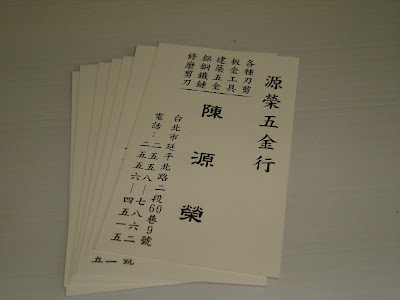 源榮五金行
各種刀剪
板金工具
建築五金
鋁銅鐵鏈
修磨剪刀
陳源榮
台北市延平北路二段69巷9號
電話:二五五八—七八六二
二五五六—四五一五
號
一五